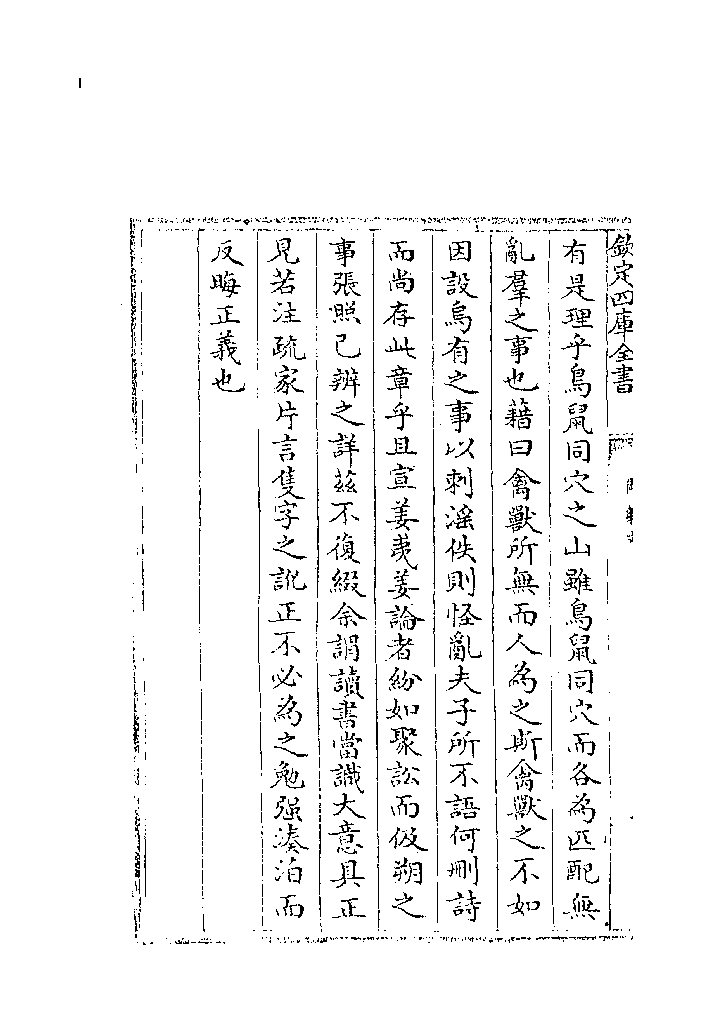 欽定四庫全書
有是理乎鳥鼠同穴之山雖鳥鼠同穴而各為匹配無
亂羣之事也藉曰禽獸所無而人為之斯禽獸之不如
因設烏有之事以刺滛佚則怪亂夫子所不語何刪詩
而尚存此章乎且宣姜夷姜論者紛如聚訟而伋朔之
事張照已辨之詳兹不復綴余謂讀書當識大意具正
見若注疏家片言隻字之訛正不必為之勉强湊泊而
反晦正義也